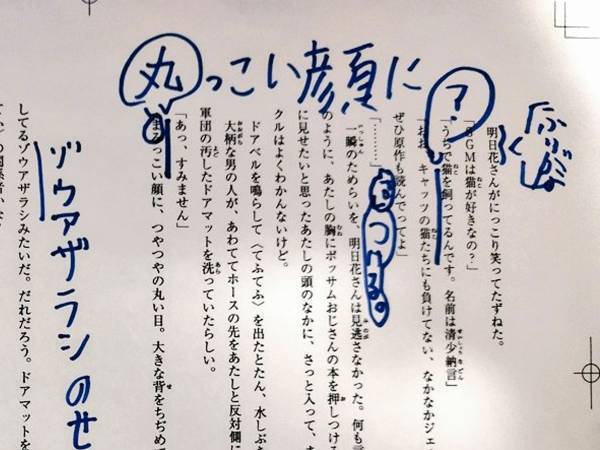 丸っこい顔に
?
明日花さんがにっこり笑ってたずねた。
「SGMは猫が好きなの?」
「うちで猫を飼ってるんです。名前は清少納言」
「おお、キャッツの猫たちにも負けてない、なかなかジェ
ぜひ原作も読んでってよ」
「………」
一瞬のためらいを、明日花さんは見逃さなかった。何も言
のように、あたしの胸にポッサムおじさんの本を押しつける
に見せたいと思ったあたしの頭のなかに、さっと入って、
クルはよくわかんないけど。
ドアベルを鳴らして〈てふてふ〉を出たとたん、水しぶき
大柄な男の人が、あわててホースの先をあたしと反対側に
軍団の汚したドアマットを洗っていたらしい。
「あっ、すみません」
まるっこい顔に、つやつやの丸い目。大きな背をちぢめて
してるゾウアザラシみたいだ。だれだろう。ドアマットを
ゾウアザラシのせ